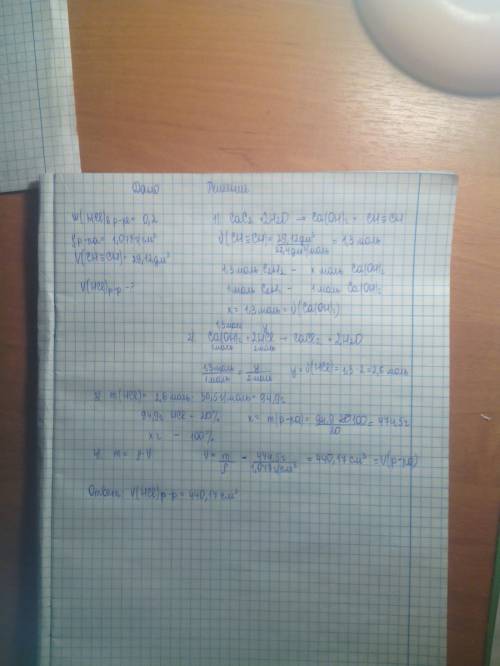 Дано Решение
w(HCl)в р-ре = 0,2 1) CaC₂ + 2H₂O → Ca(OH)₂ + CH≡CH
ρр-ра = 1,078 г/см³ ν(CH≡CH) = 29,12 дм³ / 22,4 дм³/моль = 1,3 моль
V(CH≡CH) = 29,12 дм³
V(HCl)р-р - ? 1,3 моль C₂H₂ - x моль Ca(OH)₂
1 моль C₂H₂ - 1 моль Ca(OH)₂
x = 1,3 моль = ν(Ca(OH)₂)
1,3 моль y
2) Ca(OH)₂ + 2HCl → CaCl₂ + 2H₂O
1 моль 2 моль
1,3 моль / 1 моль = y / 2 моль y = ν(HCl) = 1,3 · 2 = 2,6 моль
3) m(HCl) = 2,6 моль · 36,5 г/моль = 94,9 г
94,9 г HCl - 20% x = m(р-ра) = 94,9 · 100 / 20 = 474,5 г
x г - 100%
4) m = ρ · V V = m / ρ = 474,5 г / 1,078 г/см³ = 440,17 см³ = V(р-ра)
Ответ: V(HCl)р-р = 440,17 см³